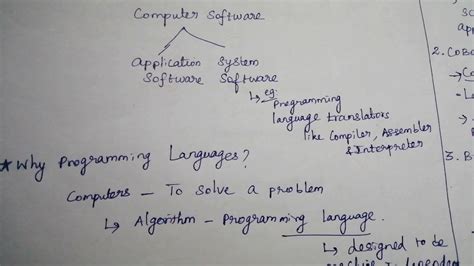 Computer Software
Application System
Software Software
↳ eg:
Programming
language translators
like Compiler, Assembler
& Interpreter
* Why Programming Languages?
Computers – To solve a problem
↳ Algorithm – Programming language.
↳ designed to be
2. COBO
3. B